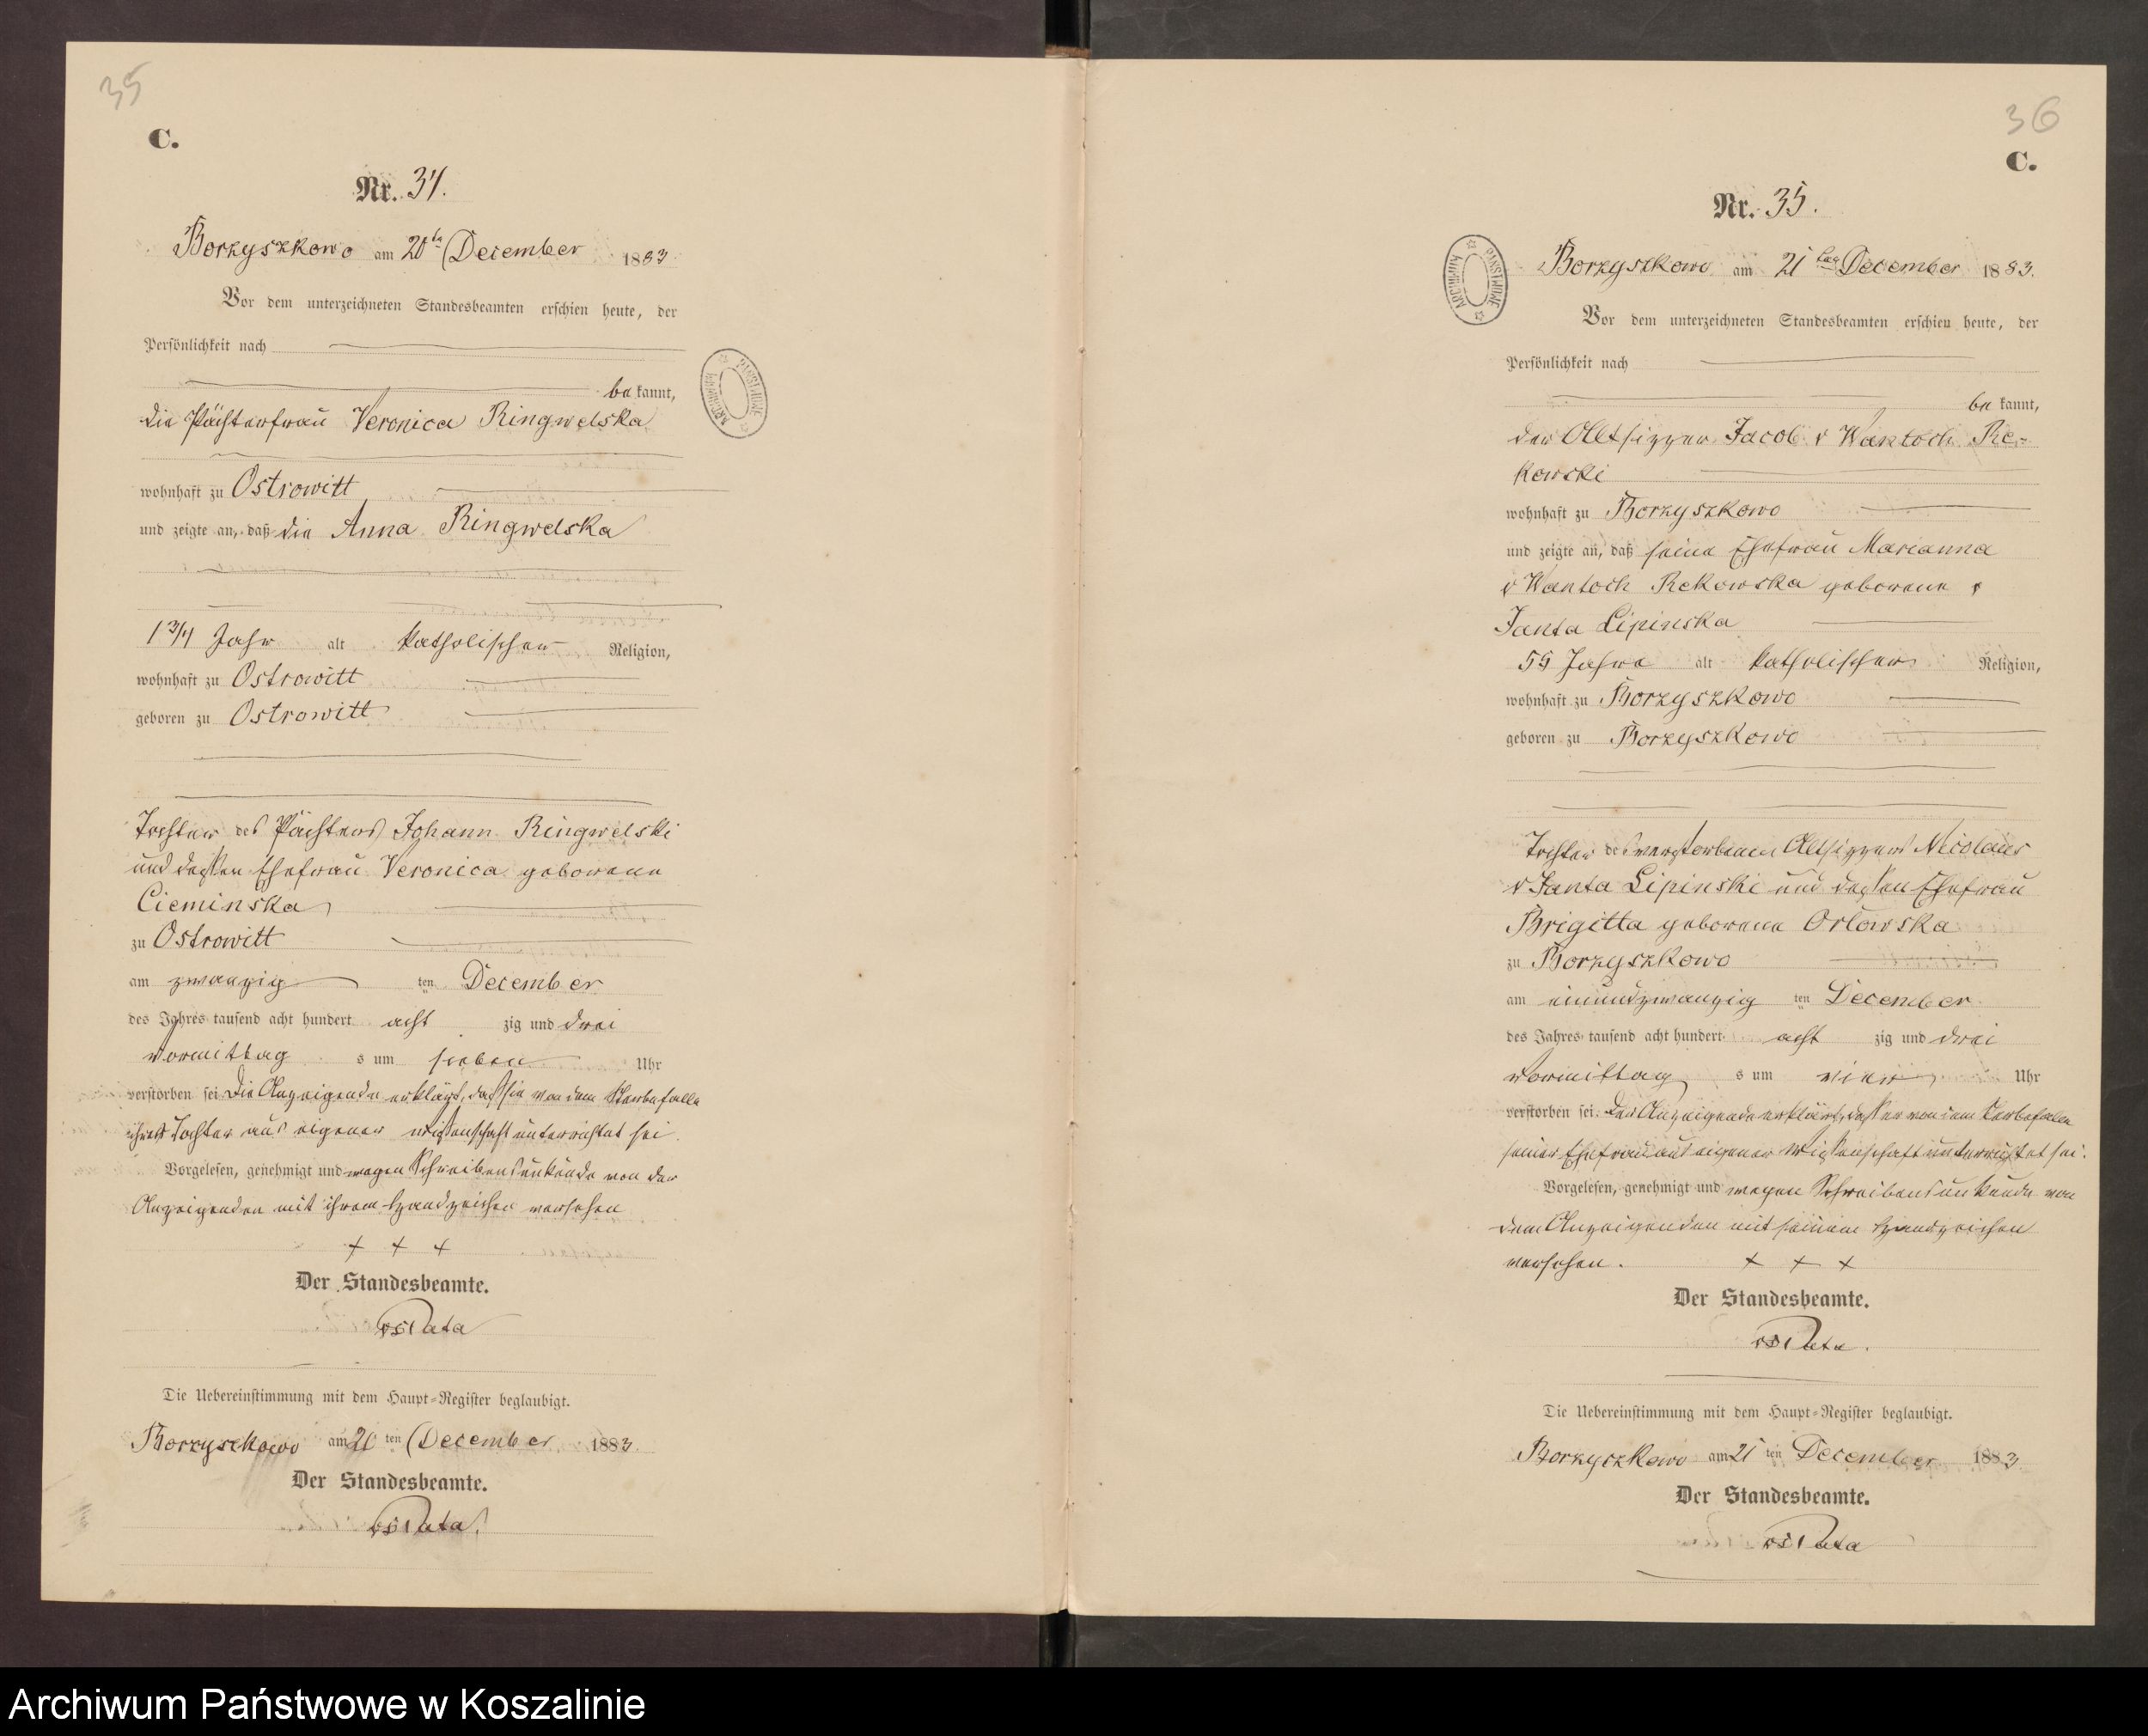 35
C.
Nr. 34.
Borzyszkowo am 20ten December 1883
Vor dem unterzeichneten Standesbeamten erschien heute, der
Persönlichkeit nach
be kannt,
die Pächterfrau Veronica Ringwelska
wohnhaft zu Ostrowitt
und zeigte an, daß die Anna Ringwelska
1 3/4 Jahr alt katholischer Religion,
wohnhaft zu Ostrowitt
geboren zu Ostrowitt
Tochter des Pächters Johann Ringwelski
und dessen Ehefrau Veronica geborene
Cieminska
zu Ostrowitt
am zwanzig ten December
des Jahres tausend acht hundert acht zig und drei
vormittag s um sieben Uhr
verstorben sei Die Anzeigende erklärt, daß sie von dem Sterbefalle
ihrer Tochter aus eigener Wissenschaft unterrichtet sei.
Vorgelesen, genehmigt und wegen Schreibensunkunde von der
Anzeigenden mit ihrem Handzeichen versehen
+ + +
Der Standesbeamte.
Die Uebereinstimmung mit dem Haupt-Register beglaubigt.
Borzyszkowo am 20 ten December 1883.
Der Standesbeamte.
36
C.
Nr. 35.
ARCHIWUM PAŃSTWOWE
Borzyszkowo am 21ten December 1883.
Vor dem unterzeichneten Standesbeamten erschien heute, der
Persönlichkeit nach
be kannt,
der Altsitzer Jacob v Wantoch Re-
kowski
wohnhaft zu Borzyszkowo
und zeigte an, daß seine Ehefrau Marianna
v Wantoch Rekowska geborene v
Janta Lipinska
55 Jahre alt katholischer Religion,
wohnhaft zu Borzyszkowo
geboren zu Borzyszkowo
Tochter des verstorbenen Altsitzers Nicolaus
v Janta Lipinski und dessen Ehefrau
Brigitta geborene Orlowska
zu Borzyszkowo
am einundzwanzig ten December
des Jahres tausend acht hundert acht zig und drei
vormittag s um vier Uhr
verstorben sei. Der Anzeigende erklärt, daß er von dem Sterbefalle
seiner Ehefrau aus eigener Wissenschaft unterrichtet sei.
Vorgelesen, genehmigt und wegen Schreibensunkunde von
dem Anzeigenden mit seinem Handzeichen
versehen. + + +
Der Standesbeamte.
Die Uebereinstimmung mit dem Haupt-Register beglaubigt.
Borzyszkowo am 21 ten December 1883
Der Standesbeamte.
Archiwum Państwowe w Koszalinie